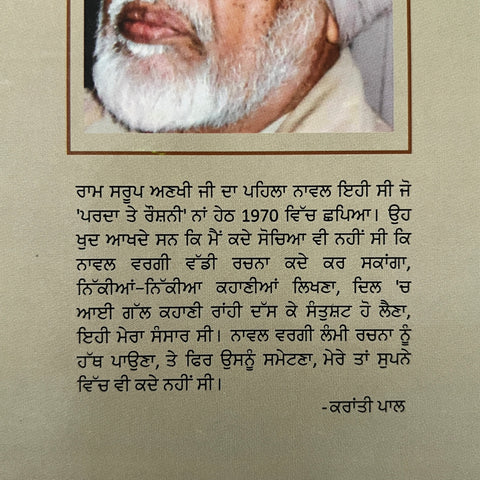 ਰਾਮ ਸਰੂਪ ਅਣਖੀ ਜੀ ਦਾ ਪਹਿਲਾ ਨਾਵਲ ਇਹੀ ਸੀ ਜੋ
'ਪਰਦਾ ਤੇ ਰੌਸ਼ਨੀ' ਨਾਂ ਹੇਠ 1970 ਵਿੱਚ ਛਪਿਆ। ਉਹ
ਖੁਦ ਆਖਦੇ ਸਨ ਕਿ ਮੈਂ ਕਦੇ ਸੋਚਿਆ ਵੀ ਨਹੀਂ ਸੀ ਕਿ
ਨਾਵਲ ਵਰਗੀ ਵੱਡੀ ਰਚਨਾ ਕਦੇ ਕਰ ਸਕਾਂਗਾ,
ਨਿੱਕੀਆਂ-ਨਿੱਕੀਆ ਕਹਾਣੀਆਂ ਲਿਖਣਾ, ਦਿਲ 'ਚ
ਆਈ ਗੱਲ ਕਹਾਣੀ ਰਾਂਹੀ ਦੱਸ ਕੇ ਸੰਤੁਸ਼ਟ ਹੋ ਲੈਣਾ,
ਇਹੀ ਮੇਰਾ ਸੰਸਾਰ ਸੀ। ਨਾਵਲ ਵਰਗੀ ਲੰਮੀ ਰਚਨਾ ਨੂੰ
ਹੱਥ ਪਾਉਣਾ, ਤੇ ਫਿਰ ਉਸਨੂੰ ਸਮੇਟਣਾ, ਮੇਰੇ ਤਾਂ ਸੁਪਨੇ
ਵਿੱਚ ਵੀ ਕਦੇ ਨਹੀਂ ਸੀ।
-ਕਰਾਂਤੀ ਪਾਲ